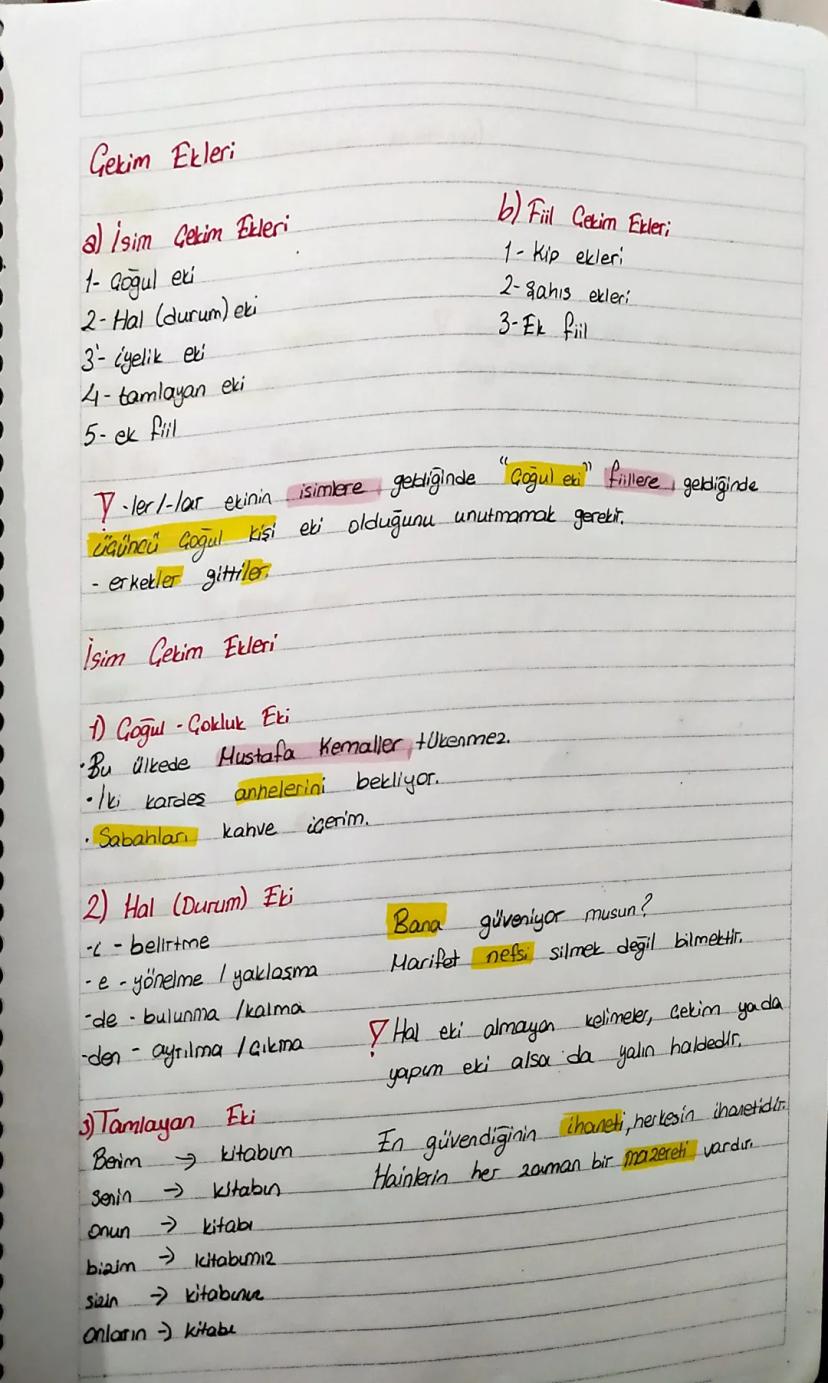 Çekim Ekleri
a) İsim Çekim Ekleri
1- Çoğul eki
2- Hal (durum) eki
3- iyelik eki
4- tamlayan eki
5- ek fiil
b) Fiil Çekim Ekleri
1- Kip ekleri
2- Şahıs ekleri
3- Ek fiil
-ler/-lar ekinin isimlere geldiğinde "Çoğul eki" fiillere geldiğinde
üçüncü çoğul kişi eki olduğunu unutmamak gerekir.
- erkekler gittiler.
İsim Çekim Ekleri
1) Çoğul - Çokluk Eki
• Bu ülkede Mustafa Kemaller tükenmez.
• İki kardeş annelerini bekliyor.
• Sabahları kahve içerim.
2) Hal (Durum) Eki
-i - belirtme
-e - yönelme / yaklaşma
-de - bulunma / kalma
-den - ayrılma / çıkma
Bana güveniyor musun?
Marifet nefsi silmek değil bilmektir.
Hal eki almayan kelimeler, çekim yada
yapım eki alsa da yalın haldedir.
3) Tamlayan Eki
Benim → kitabım
senin → kitabın
onun → kitabı
bizim → kitabımız
sizin → kitabınız
onların → kitabı
En güvendiğinin ihaneti, herkesin ihanetidir.
Hainlerin her zaman bir mazereti vardır.